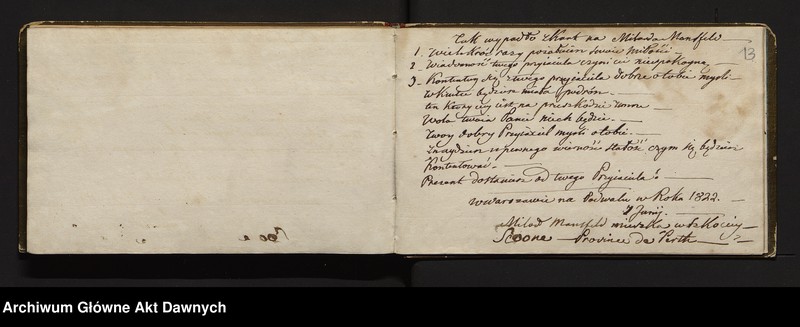 13
Tak wypadło z Kart na Milorda Mansfeld
1. Wiele kroć razy
2. Wiadomość twego przyiaciela czyni cie niespokoyną
3 - Kontentuy się z twego przyiaciela dobrze o tobie myśli
w krutce będziesz miała podróż.
ten który cię iest na przeszkodzie
Wola twoia Panie niech będzie.
Twoy dobry Przyiaciel myśli o tobie.
Znaydziesz u pewnego wierność stałość czym się będziesz
Kontentować.
Prezent dostaniesz od twego Przyiaciela
w Warszawie na Podwalu w Roku 1822.
Junij.
Milord Mansfeld mieszka w Szkociey
Scoone Province de Perth
Archiwum Główne Akt Dawnych